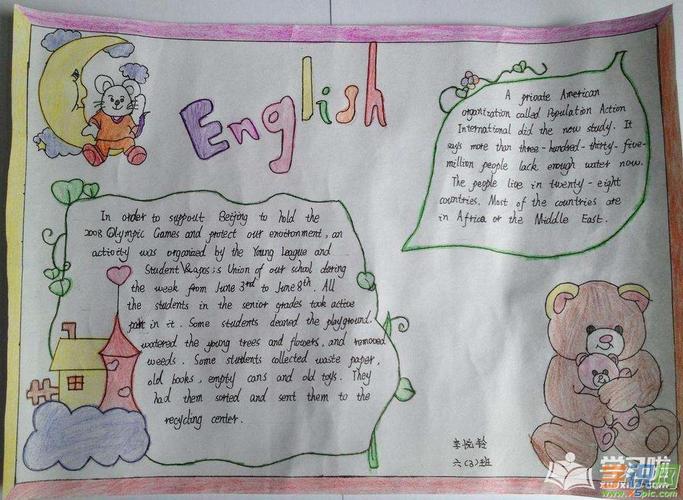 English
A private American
organization called Population Action
International did the new study. It
says more than three-hundred-thirty-five-
million people lack enough water now.
The people live in twenty-eight
countries. Most of the countries are
in Africa or the Middle East.
In order to support Beijing to hold the
2008 Olympic Games and protect our environment, an
activity was organized by the Young League and
Student Union of our school during
the week from June 3rd to June 8th. All
the students in the senior grades took active
part in it. Some students cleaned the playground,
watered the young trees and flowers, and removed
weeds. Some students collected waste paper,
old books, empty cans and old toys. They
had them sorted and sent them to the
recycling center.
六(3)班
学习啦